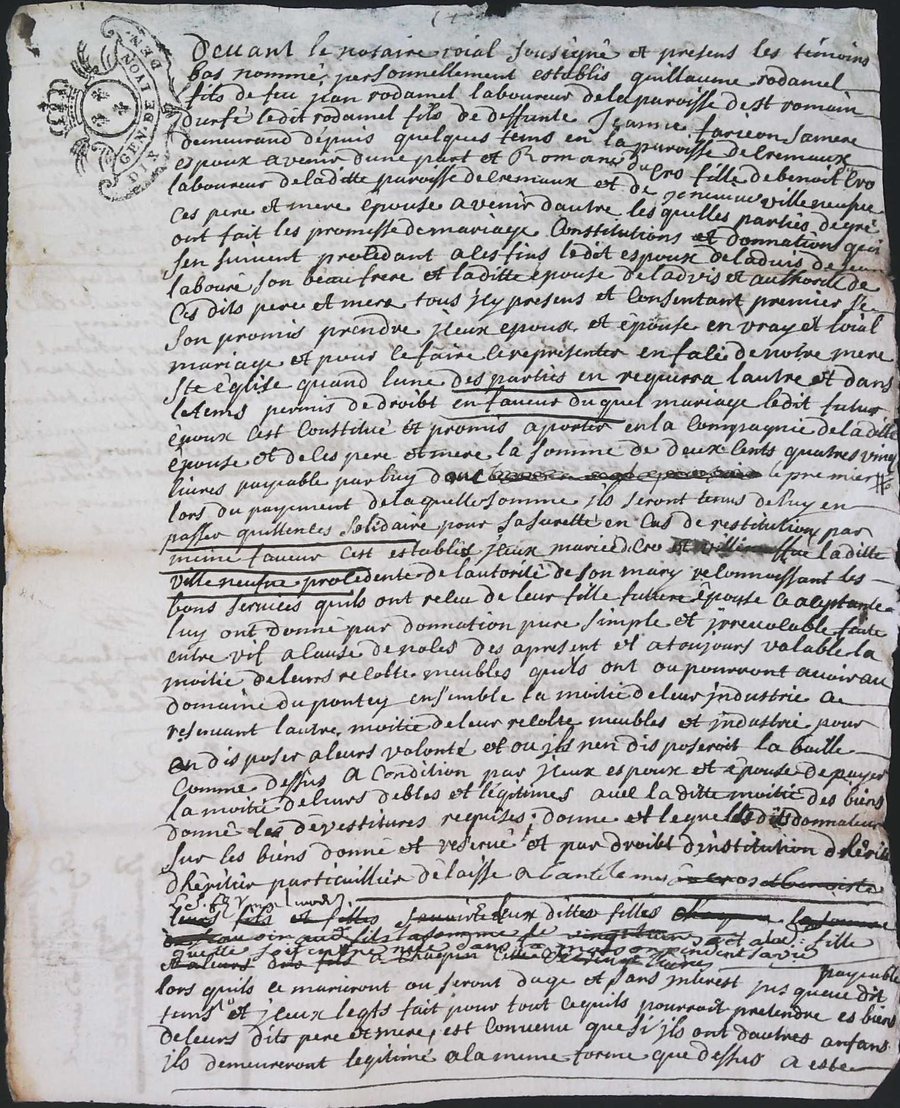 GEN. DE LYON.
DIX DEN.
Devant le notaire roial sousigné et presens les témoins
bas nommé personnellement establis guillaume rodamel
fils de feu jean rodamel laboureur de la paroisse de st romain
durfé ledit rodamel fils de deffunte jeanne farieon sa mere
demeurand depuis quelques tems en la paroisse de Cremaux
epoux avenir dune part et Romane du Cro fille de benoit Cro
laboureur de laditte paroisse de Cremaux et de jeneime villeneufve
Ces pere et mere epouse avenir dautre, les quelles parties de gré
ont fait les promesse de mariage Constitutions et donnation qui
sen suivent procedant a les fins ledit espoux de ladvis de jean
laboure son beau frere et laditte épouse de ladvis et authorité de
Ces dits pere et mere tous icy presens et Consentant premier se
son promis prendre jceux epoux et épouse en vray et loial
mariage et pour ce faire ce representer en face de notre mere
Ste église quand lune des parties en requirra lautre et dans
le tems permis de droibt en faveur du quel mariage ledit futur
époux cest Constitué et promis aporter en la Compagnie de la ditte
épouse et de les pere et mere la somme de deux Cents quatres vingt
livres payable par luy le premier
lors du payement de laquelle somme ils seront tenus de luy en
passer quittences solidaire pour sa surette en Cas de restitution, par
meme faveur cest establis jceux mariée d. cro laditte
villeneufve procedente de lautorité de son mary reconnoissant les
bons services quils ont receu de leur fille future épouse Ce aceptante
luy ont donné par donnation pure simple et jrrevocable faite
entre vif a cause de noces des apresent et a toujours valable la
moitie de leurs recolte meubles quils ont ou pourront avoir au
domaine du pontey ensemble la moitié de leur jndustrie ce
reservant lautre moitie de leur recolte meubles et jndustrie pour
en disposer a leurs volonté et ou ils nen disposeroit la baille
Comme dessus a Condition par jceux espoux et épouse de payer
la moitié de leurs debtes et légitimes avec la ditte moitie des biens
donné les dévestitures requises; donne et legue lesdits donnateur
sur les biens donné et reservé et par droibt dinstitution
dhéritier particuillier delaisse a
fils et filles dittes filles
fille
payable
lors quils ce mariront ou seront dage et sans interest jusqueu dit
tems et jceux legts fait pour tout ce quils pourroit pretendre es biens
de leurs dits pere et mere, est Convenu que si ils ont dautres anfans
ils demeureront legitimé a la meme forme que dessus a esté